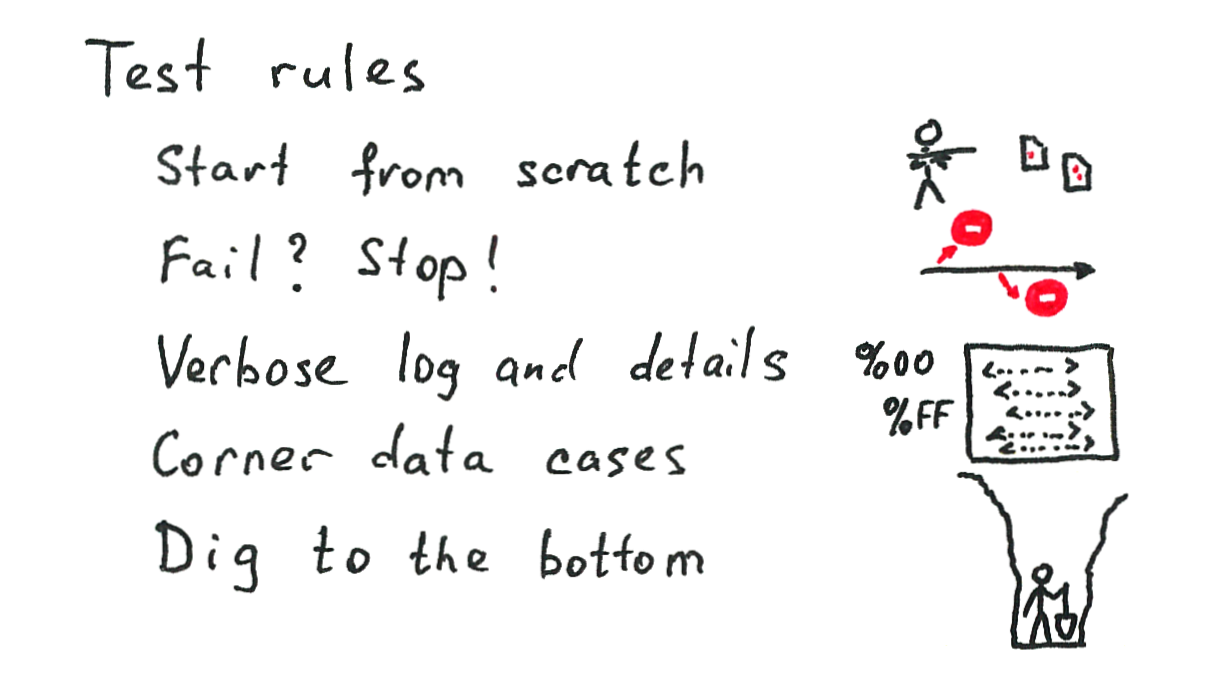 Test rules
Start from scratch
Fail? Stop!
Verbose log and details
%00
%FF
Corner data cases
Dig to the bottom